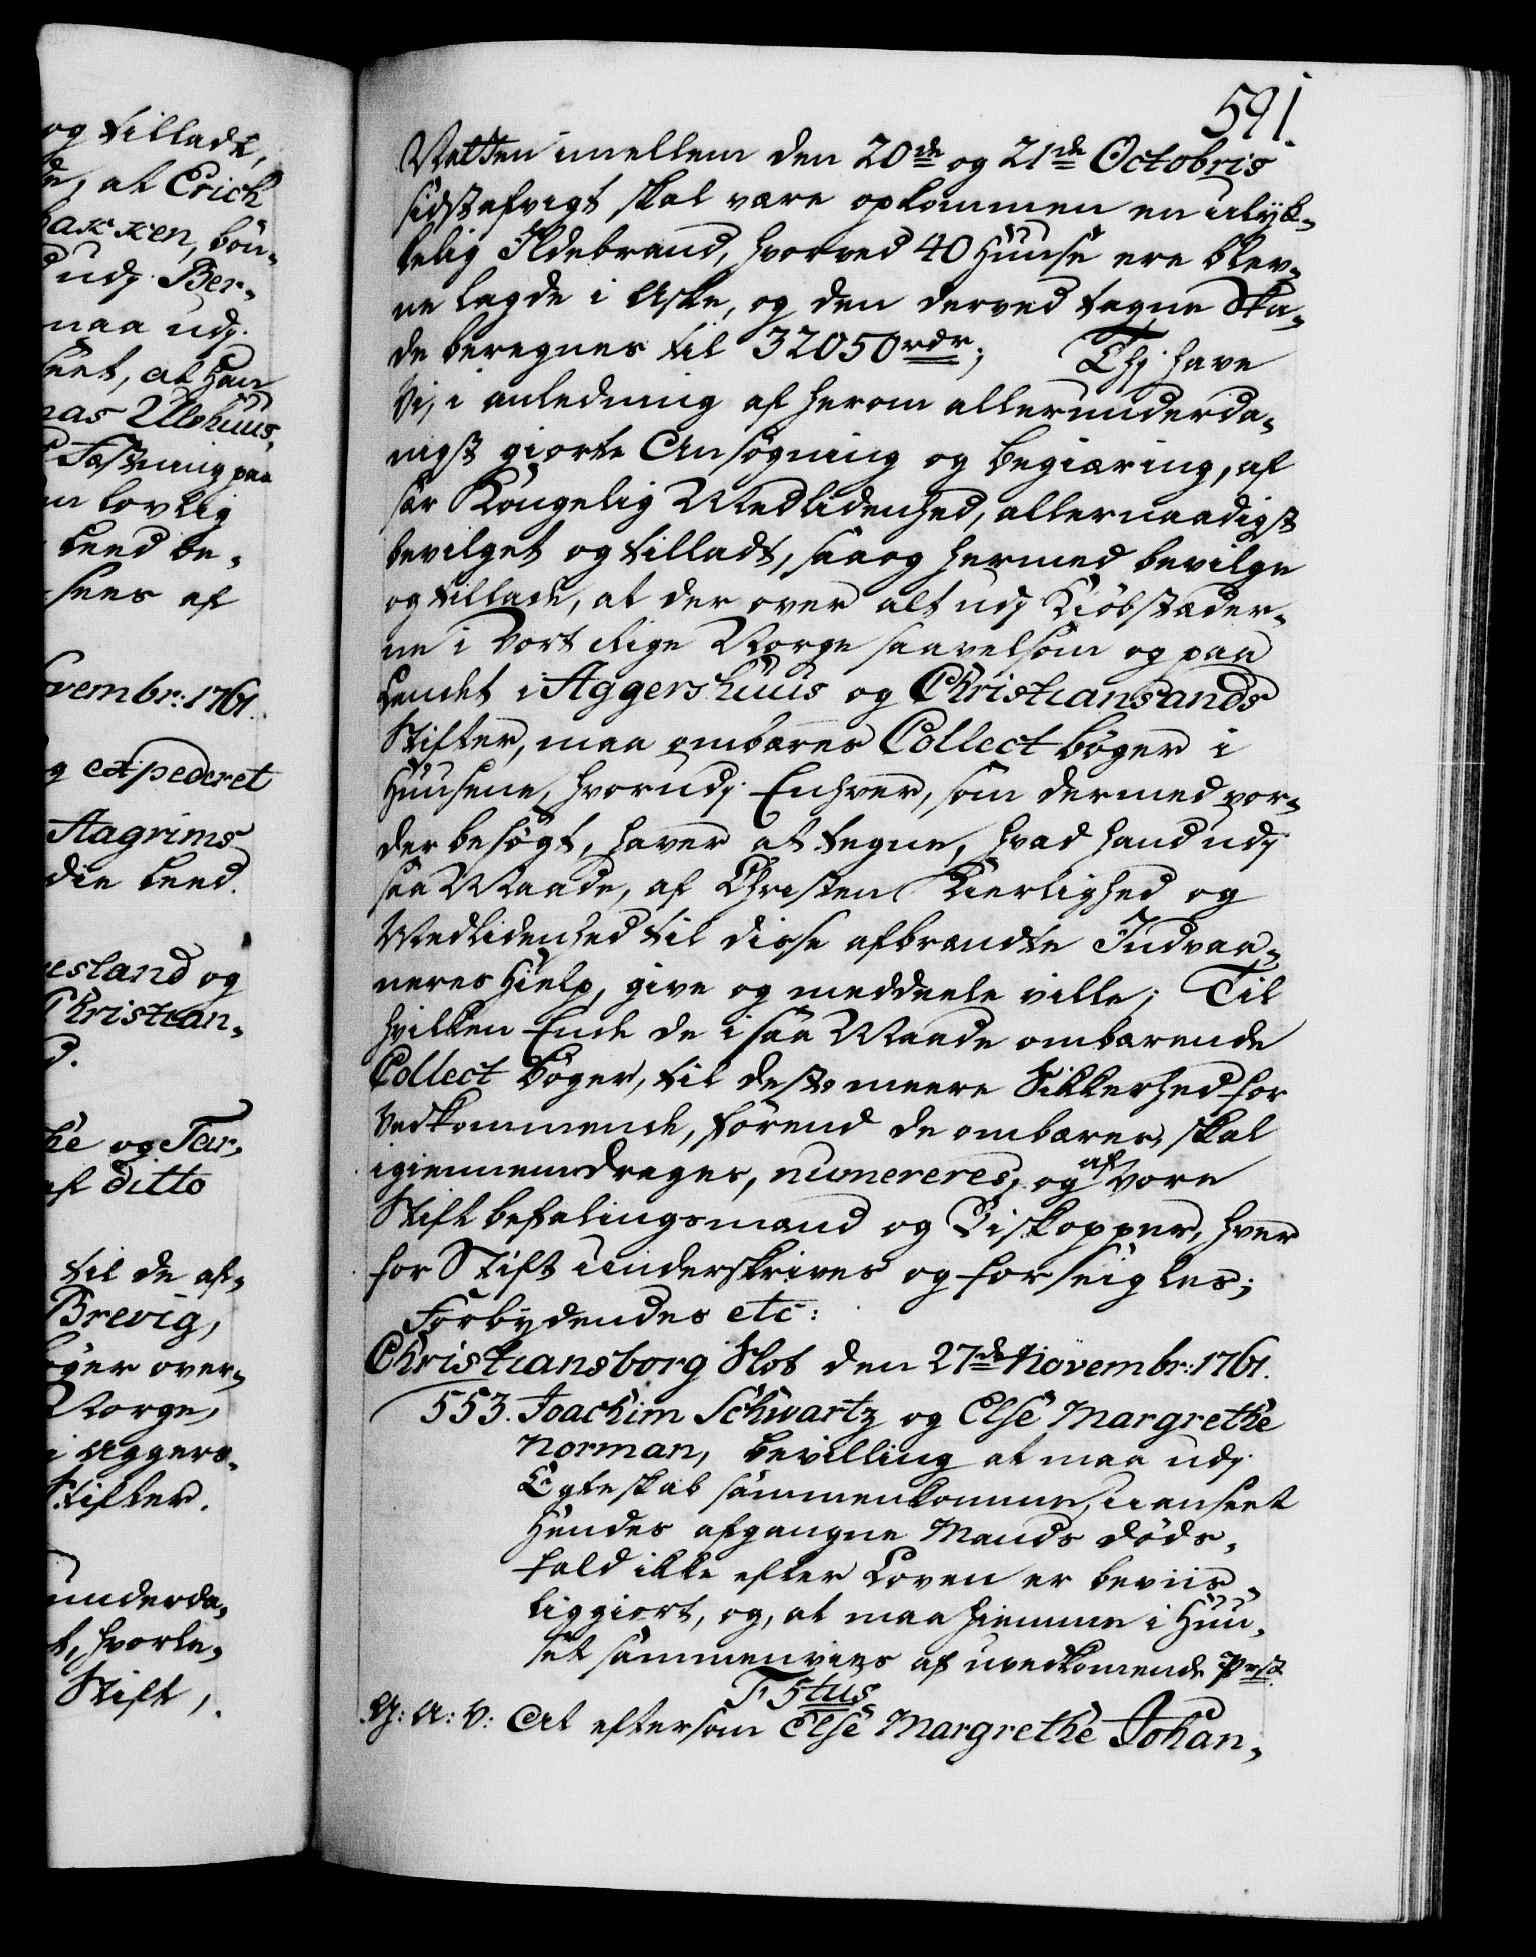 og tilladt,
de, at Erich
bakken, bön-
udj Ber-
maa udj
seet, at Han
nas Ullshuus,
Fæstning paa
en lovlig
beed be-
sees af
ovembr: 1761.
g expederet
Aagrims
die beed.
resland og
Christian-
d.
he og Tar-
af ditto
til de af-
Brevig,
bøger over-
Norge,
i Aggers-
Stifter.
underda-
t, hvorle-
Stift,
591.
Natten imellem den 20de og 21de Octobris
sidstafvigt skal være opkommen en ulyk-
kelig Ildebrand, hvorved 40 Huuse ere blev-
ne lagde i Aske, og den derved tagne Ska-
de beregnes til 32050 rdr; Thj have
Vi, i anledning af herom allerunderda-
nigst giorte Ansøgning og begiæring, af
sær Kongelig Medlidenhed, allernaadigst
bevilget og tilladt, saa og hermed bevilge
og tillade, at der over alt udj Kiöbstæder-
ne i Vort Rige Norge saavelsom og paa
Landet i Aggershuus og Christiansands
Stifter, maa ombæres Collect bøger i
Huusene, hvorudj Enhver, som dermed vor-
der besøgt, haver at tegne, hvad hand udj
saa Maade, af Christen Kierlighed og
Medlidenhed til disse afbrændte Indvaa-
neres Hielp, give og meddeele ville; Til
hvilken Ende de i saa Maade ombærende
Collect bøger, til desto meere Sikkerhed for
Vedkommende, förend de ombæres, skal
igiennemdrages, numereres, og af Vore
Stiftbefalingsmænd og Biskopper, hver
for Stift underskrives og forseigles;
Forbydendes etc:
Christiansborg Slot den 27de Novembr: 1761.
553. Joachim Schwartz og Else Margrethe
Norman, bevilling at maa udj
Egteskab sammenkomme, uanseet
Hendes afgangne Mands döds-
fald ikke efter Loven er beviis-
liggiort, og, at maa hiemme i Huu-
set sammenvies af uvedkomende Præst.
F: 5tus.
G: A: V: At eftersom Else Margrethe Johan-